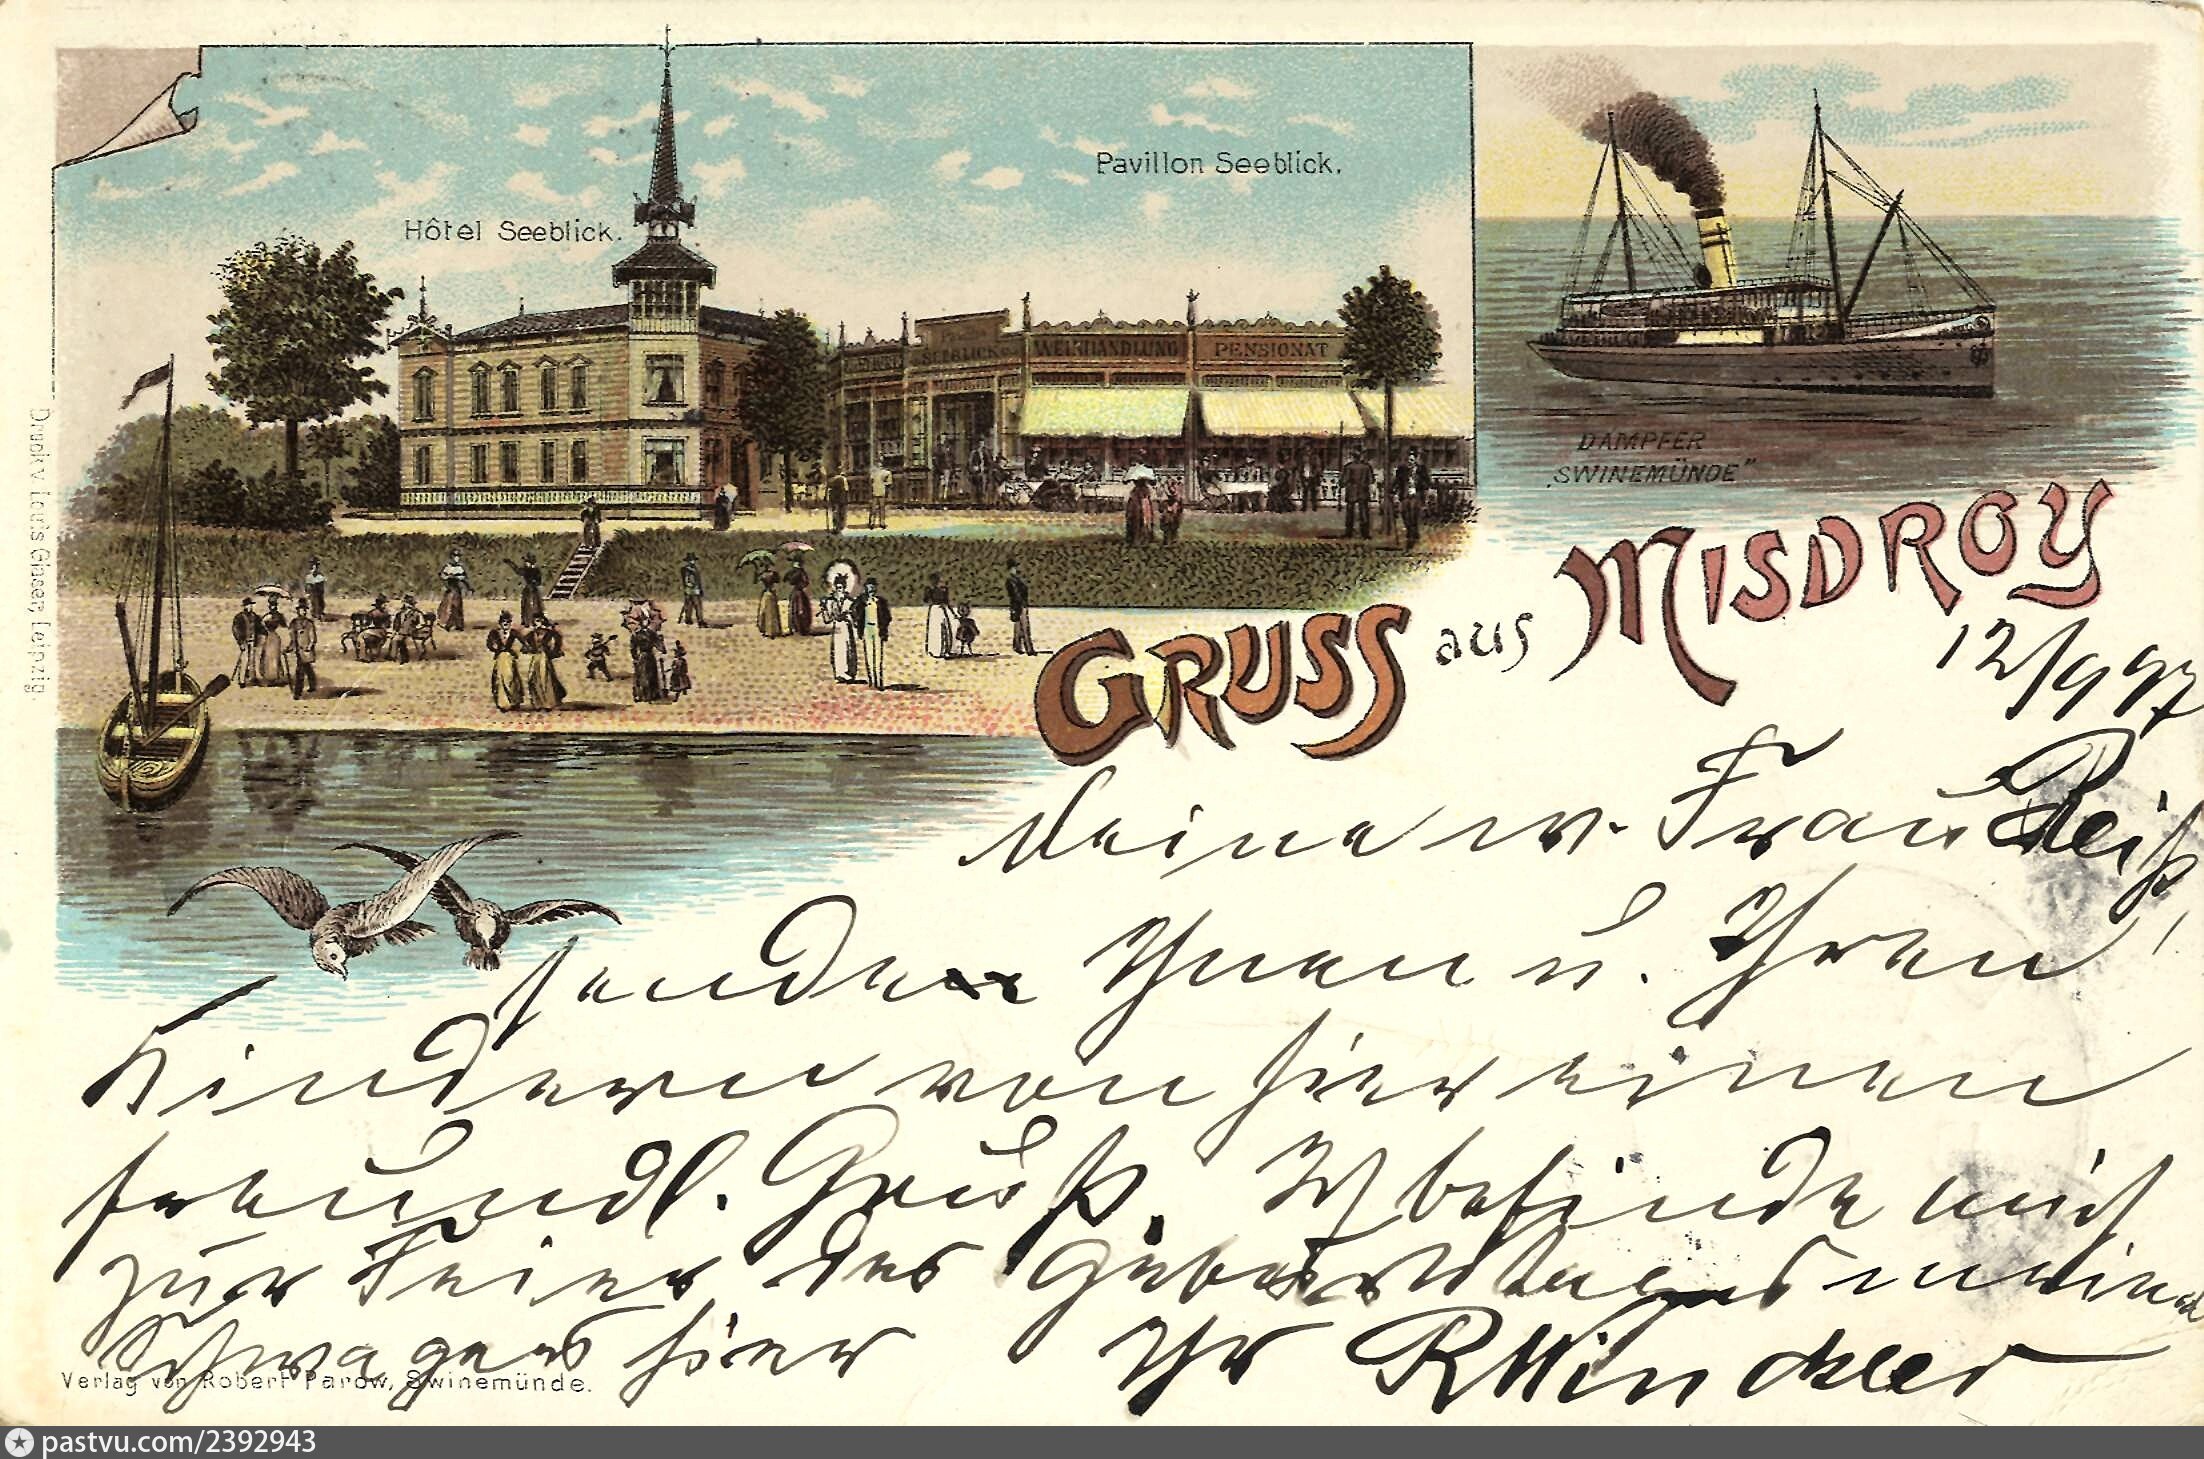 Hôtel Seeblick.
Pavillon Seeblick.
SEEBLICK WEINHANDLUNG PENSIONAT
DAMPFER
„SWINEMÜNDE"
GRUSS aus MISDROY
12/9 97
Meine w. Frau Reiß,
sende Ihnen u. Ihren
Kindern von hier einen
freundl. Gruß. Ich befinde mich
zur Feier des Geburtstages meines
Schwagers hier Ihr RWinckler
Druck v. Louis Glaser, Leipzig.
Verlag von Robert Parow, Swinemünde.
pastvu.com/2392943